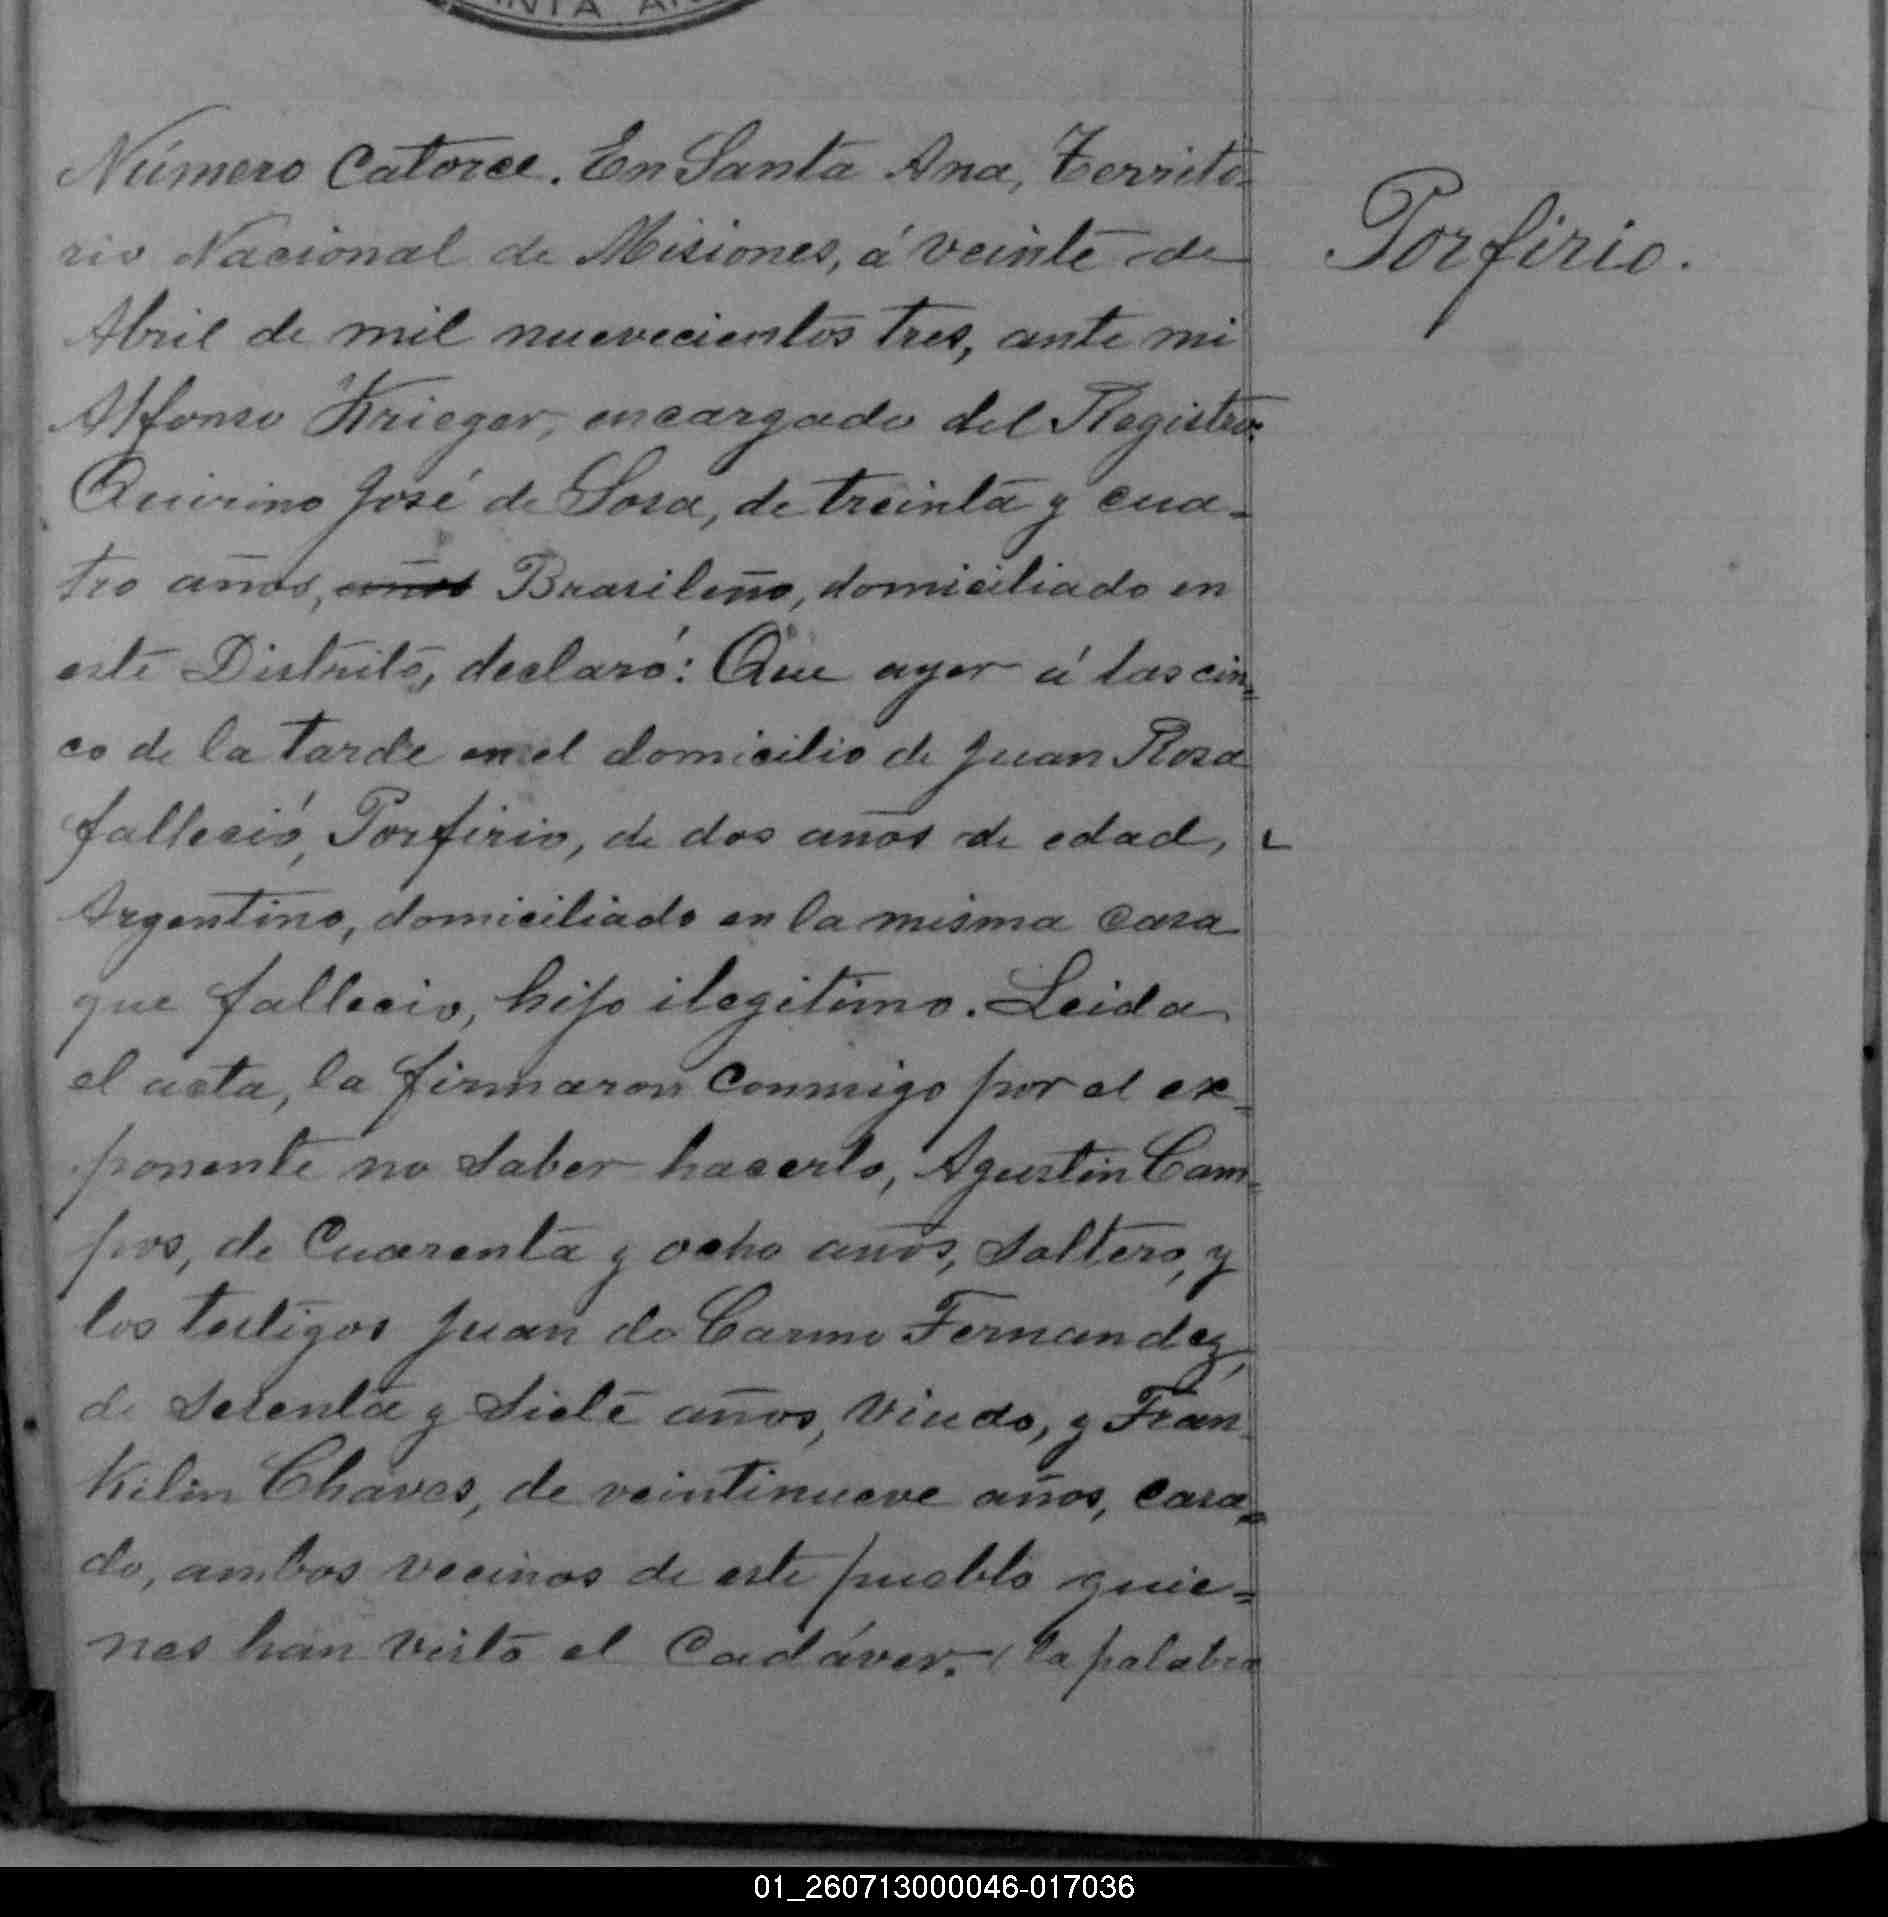 Número Catorce. En Santa Ana, Territo-
rio Nacional de Misiones, á veinte de
Abril de mil nuevecientos tres, ante mi
Alfonso Krieger, encargado del Registro:
Quirino José de Sosa, de treinta y cua-
tro años, años Brasileño, domiciliado en
este Distrito, declaró: Que ayer á las cin=
co de la tarde en el domicilio de Juan Rosa
falleció, Porfirio, de dos años de edad,
Argentino, domiciliado en la misma casa
que fallecio, hijo ilegitimo. Leida
el acta, la firmaron conmigo por el ex=
ponente no saber hacerlo, Agustin Cam=
pos, de cuarenta y ocho años, soltero, y
los testigos Juan do Carmo Fernandez,
de sesenta y siete años, viudo, y Fran
kilin Chaves, de veintinueve años, casa=
do, ambos vecinos de este pueblo quie=
nes han visto el cadáver. (la palabra
Porfirio.
01_260713000046-017036